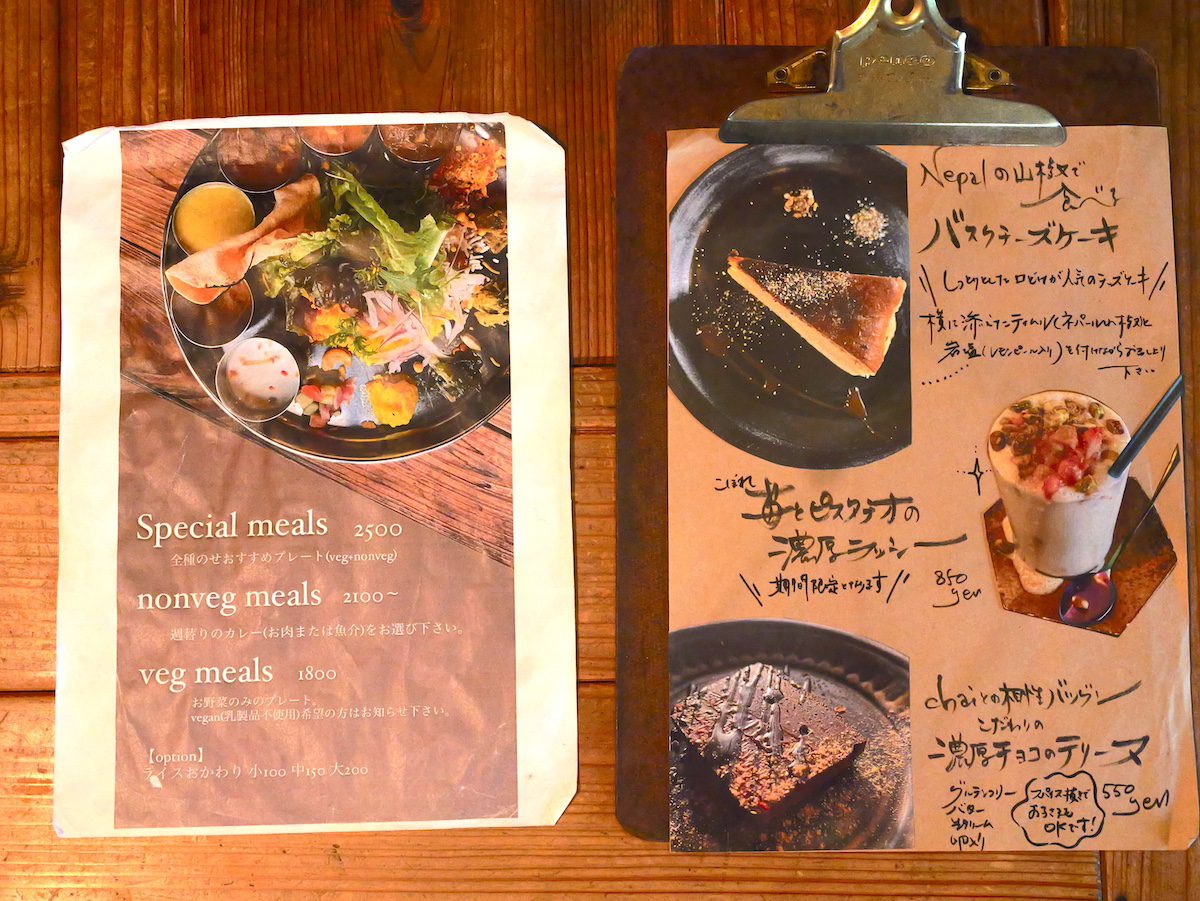 Special meals 2500
全種のせおすすめプレート(veg+nonveg)
nonveg meals 2100～
週替りのカレー(お肉または魚介)をお選び下さい。
veg meals 1800
お野菜のみのプレート。
vegan(乳製品不使用)希望の方はお知らせ下さい。
【option】
ライスおかわり 小100 中150 大200
Nepalの山椒で
食べる
バスクチーズケーキ
しっとりとした口どけが人気のチーズケーキ
横に添えたティムル(ネパールの山椒)と
岩塩(レモンピール入り)を付けながらお召し上り
下さい
こぼれ
苺とピスタチオの
濃厚ラッシー
期間限定となります
850
yen
chaiとの相性バツグン
こだわりの
濃厚チョコのテリーヌ
グルテンフリー
バター
生クリーム
卵入り
スパイス抜きで
お子さまも
OKです!
550
yen